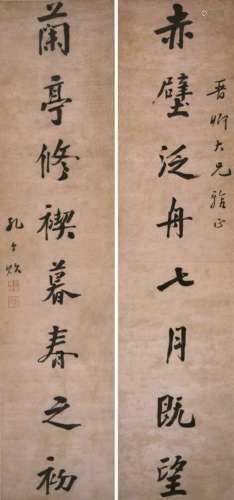 赤壁泛舟七月既望
晋卿大兄雅正
蘭亭修禊暮春之初